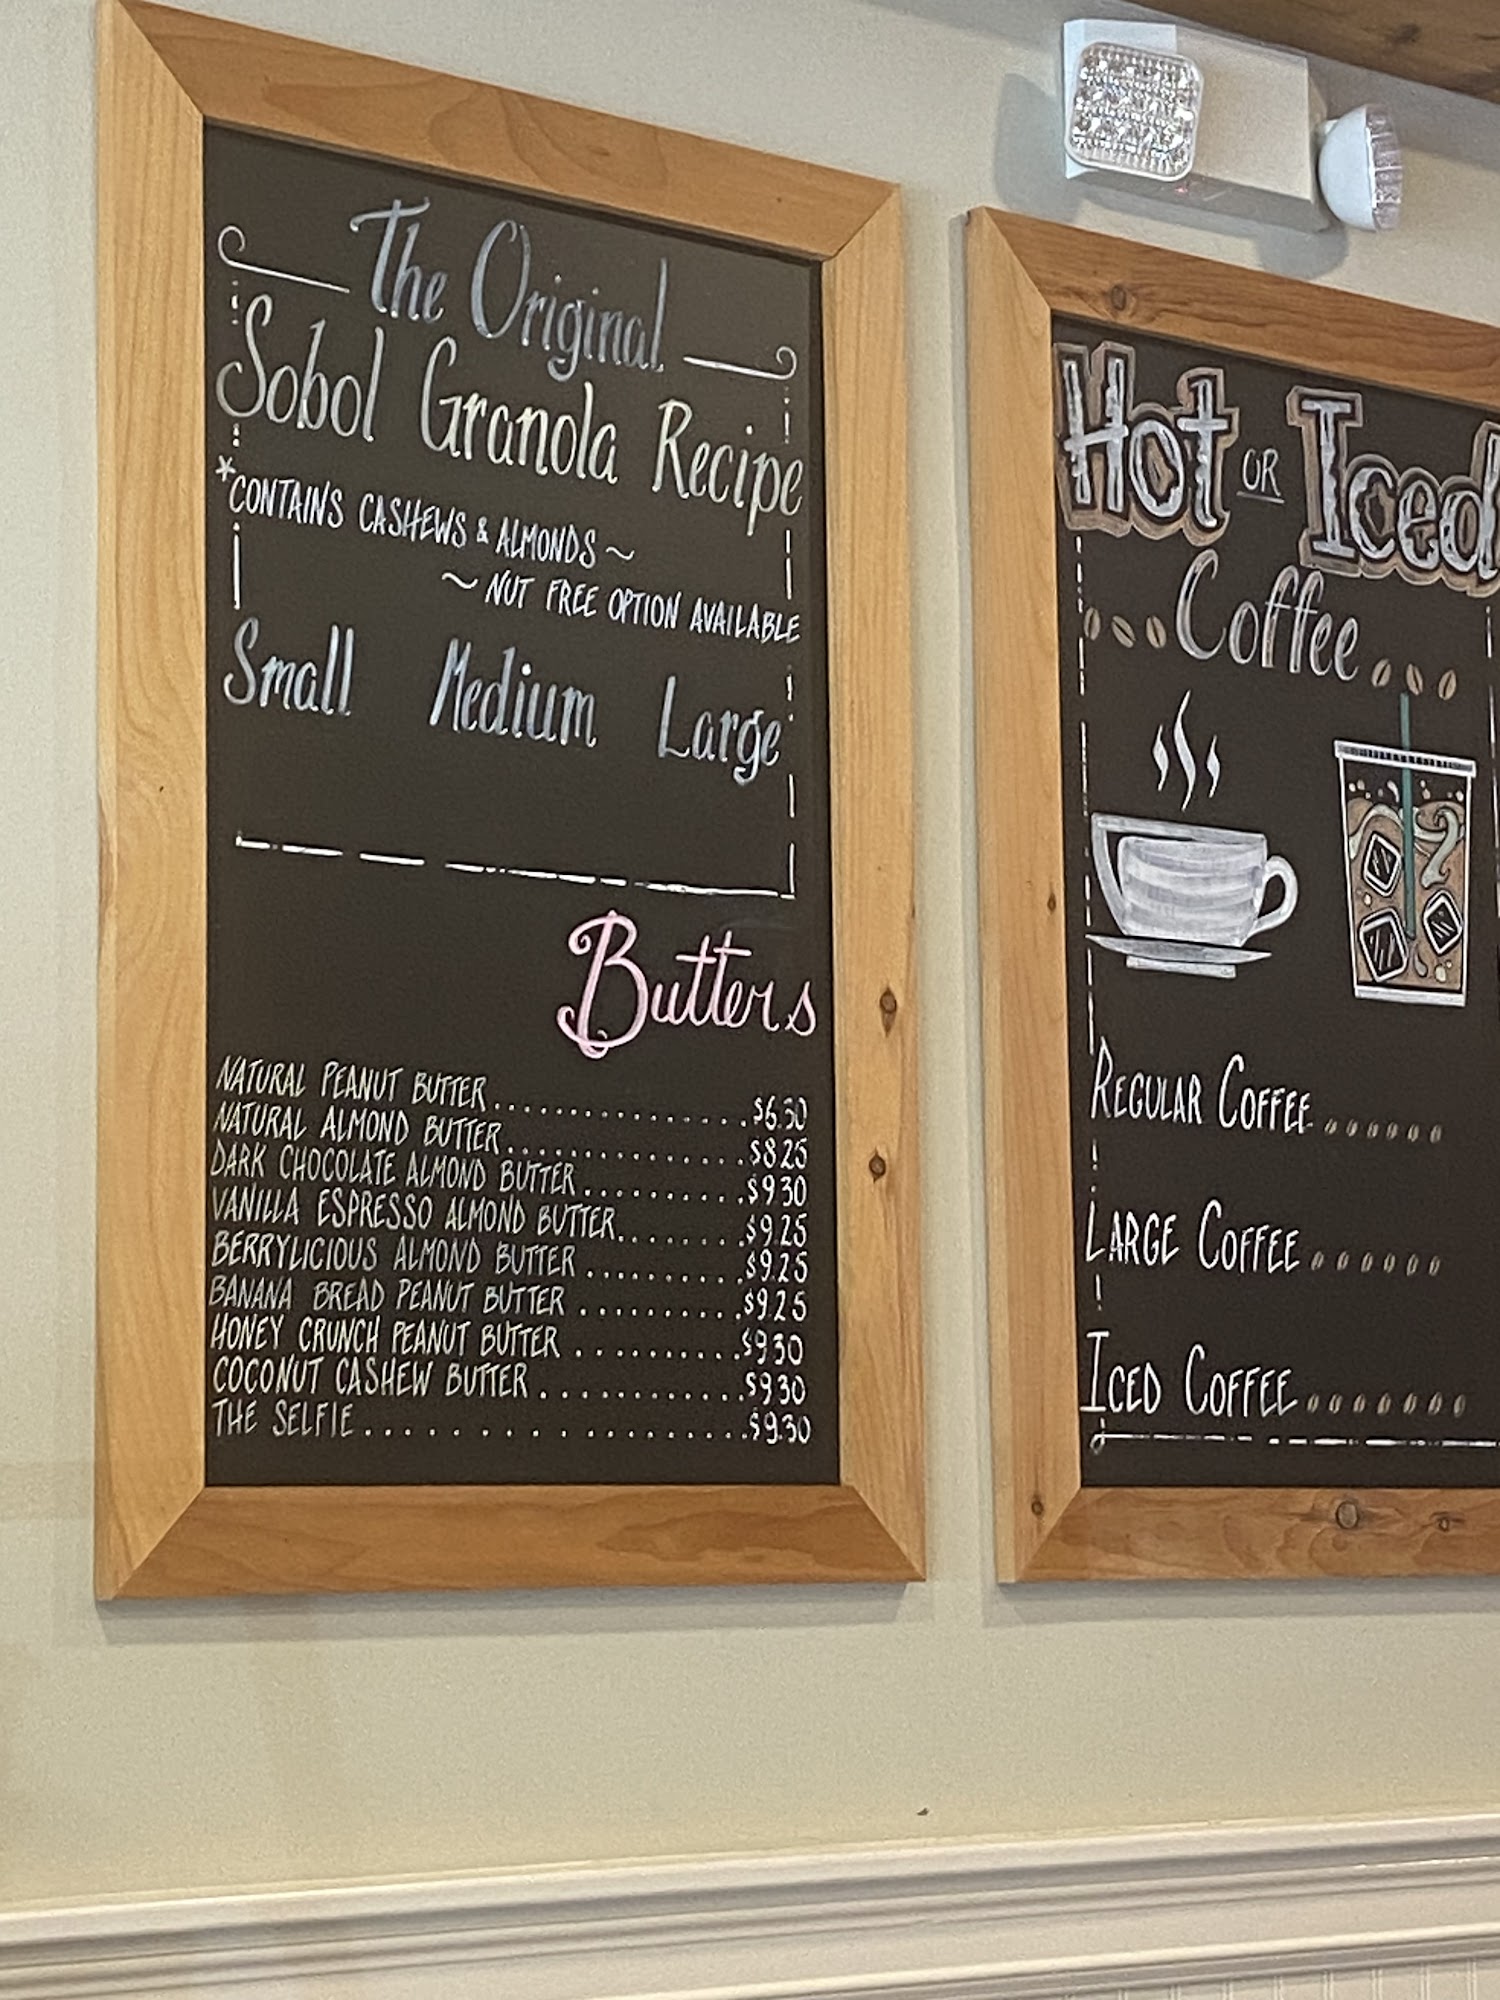 The Original
Sobol Granola Recipe
*CONTAINS CASHEWS & ALMONDS ~
~ NUT FREE OPTION AVAILABLE
Small Medium Large
Butters
NATURAL PEANUT BUTTER................$6.30
NATURAL ALMOND BUTTER................$8.25
DARK CHOCOLATE ALMOND BUTTER...........$9.30
VANILLA ESPRESSO ALMOND BUTTER.........$9.25
BERRYLICIOUS ALMOND BUTTER...........$9.25
BANANA BREAD PEANUT BUTTER...........$9.25
HONEY CRUNCH PEANUT BUTTER..........$9.30
COCONUT CASHEW BUTTER............$9.30
THE SELFIE....................$9.30
Hot OR Iced
Coffee
REGULAR COFFEE......
LARGE COFFEE......
ICED COFFEE.......